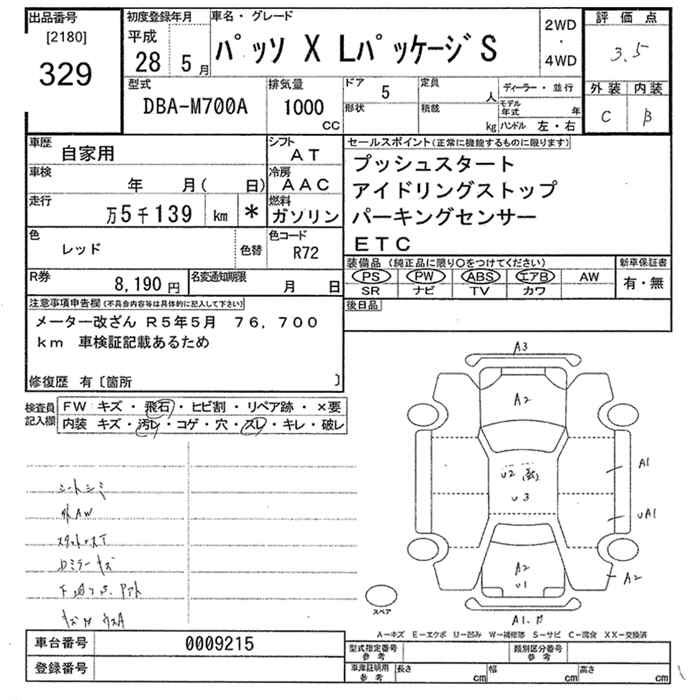 出品番号
[2180]
329
初度登録年月
平成
28 5 月
車名・グレード
パッソ X LパッケージS
2WD
・
4WD
評価点
3.5
外装 内装
C B
型式
DBA-M700A
排気量
1000
CC
ドア
5
形状
定員
人
積載
kg
ディーラー・並行
モデル
年式 年
ハンドル 左・右
車歴
自家用
シフト
AT
車検
年 月( 日)
冷房
AAC
走行
万5千139 km *
燃料
ガソリン
色
レッド
色替
色コード
R72
R券
8,190 円
名変通知期限
月 日
セールスポイント(正常に機能するものに限ります)
プッシュスタート
アイドリングストップ
パーキングセンサー
ETC
装備品 (純正品に限り○をつけてください)
PS PW ABS エアB AW
SR ナビ TV カワ
新車保証書
有・無
後日品
注意事項申告欄(不具合内容等は具体的に記入して下さい)
メーター改ざん R5年5月 76,700
km 車検証記載あるため
修復歴 有〔箇所 〕
検査員
記入欄
FW キズ・飛石・ヒビ割・リペア跡・×要
内装 キズ・汚レ・コゲ・穴・スレ・キレ・破レ
シートシミ
外AW
Dミラーキズ
A3
A2
U2
U3
A1
UA1
A2
A2
U1
A1.
スペア
A−キズ E−エクボ U−凹み W−補修跡 S−サビ C−腐食 XX−交換済
車台番号
0009215
登録番号
型式指定番号
参考
類別区分番号
参考
車庫証明用
参考
長さ cm 幅 cm 高さ cm